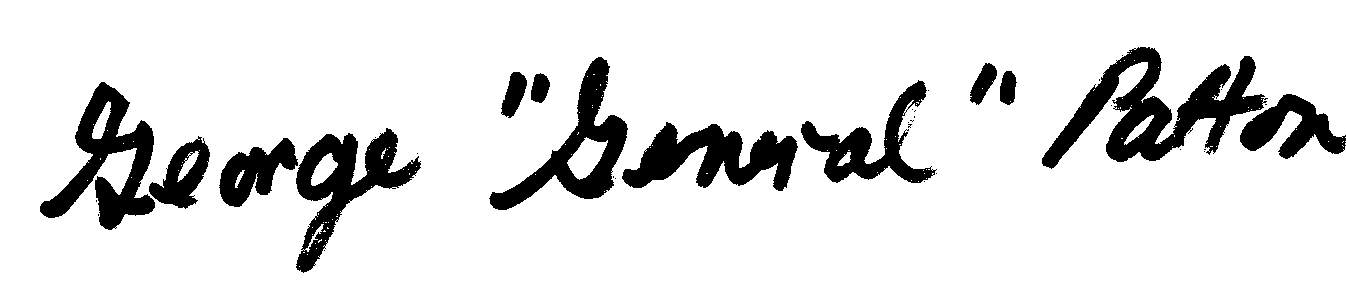 George "General" Patton